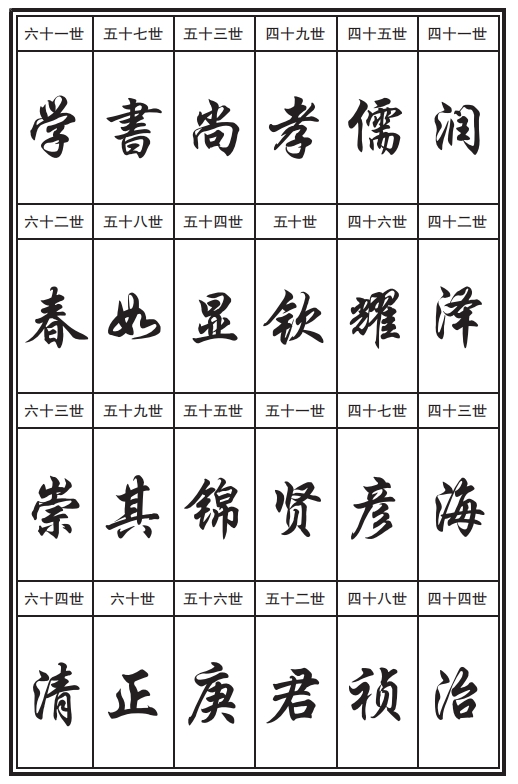 四十一世
润
四十二世
泽
四十三世
海
四十四世
治
四十五世
儒
四十六世
耀
四十七世
彦
四十八世
祯
四十九世
孝
五十世
钦
五十一世
贤
五十二世
君
五十三世
尚
五十四世
显
五十五世
锦
五十六世
庚
五十七世
書
五十八世
如
五十九世
其
六十世
正
六十一世
学
六十二世
春
六十三世
崇
六十四世
清